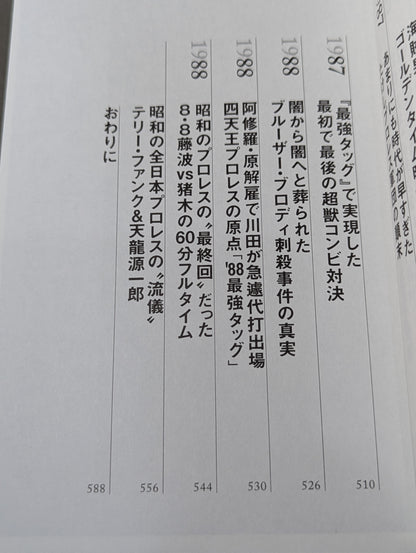 ゴールデンタイム
あまりにも時代が早すぎた
1987
『最強タッグ』で実現した
最初で最後の超獣コンビ対決
510
1988
闇から闇へと葬られた
ブルーザー・ブロディ刺殺事件の真実
526
阿修羅・原解雇で川田が急遽代打出場
四天王プロレスの原点「'88最強タッグ」
530
1988
昭和のプロレスの〝最終回〟だった
8・8藤波vs猪木の60分フルタイム
544
昭和の全日本プロレスの〝流儀〟
テリー・ファンク&天龍源一郎
556
おわりに
588